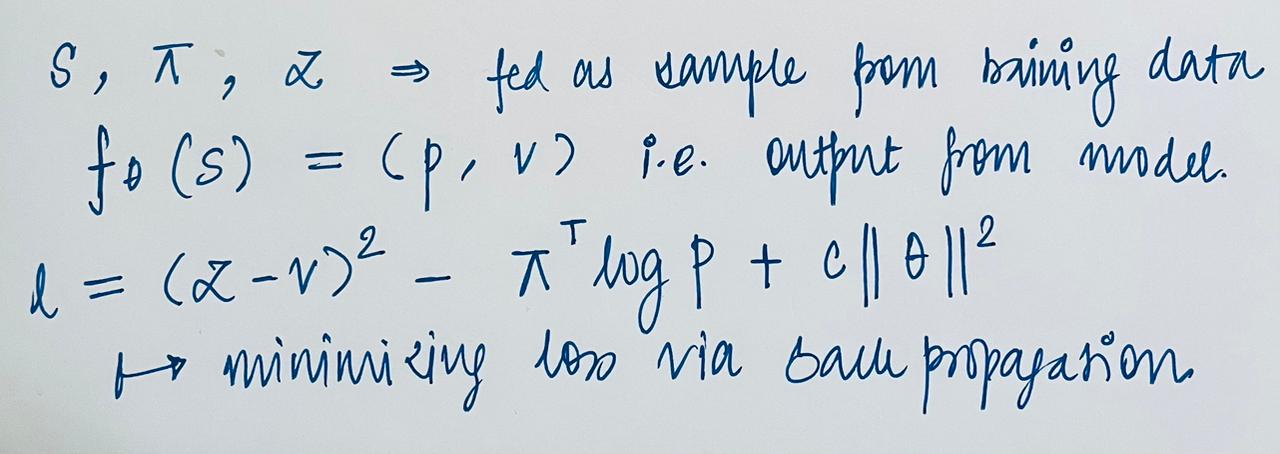 s, π, z ⇒ fed as sample from training data
f_θ(s) = (p, v) i.e. output from model.
l = (z-v)² - π^T log p + c||θ||²
↦ minimizing loss via back propagation.